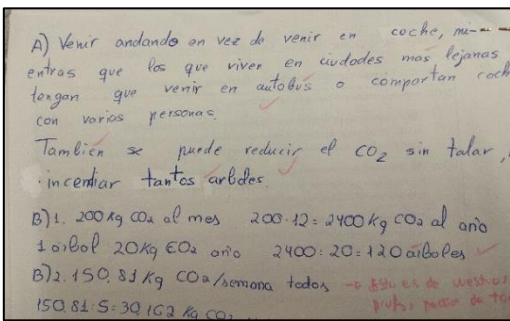 A) Venir andando en vez de venir en coche, mi-
entras que los que viven en ciudades mas lejanas
tengan que venir en autobús o compartan coch
con varias personas.
También se puede reducir el CO2 sin talar,
incendiar tantos arboles
B)1. 200 Kg CO2 al mes 200·12=2400 Kg CO2 al año
1 árbol 20Kg CO2 año 2400:20=120 aŕboles
B)2. 150,81 Kg CO2/semana todos → Esto es de vuestros
profs, pedía de to
150,81:5=30,162 Kg CO2